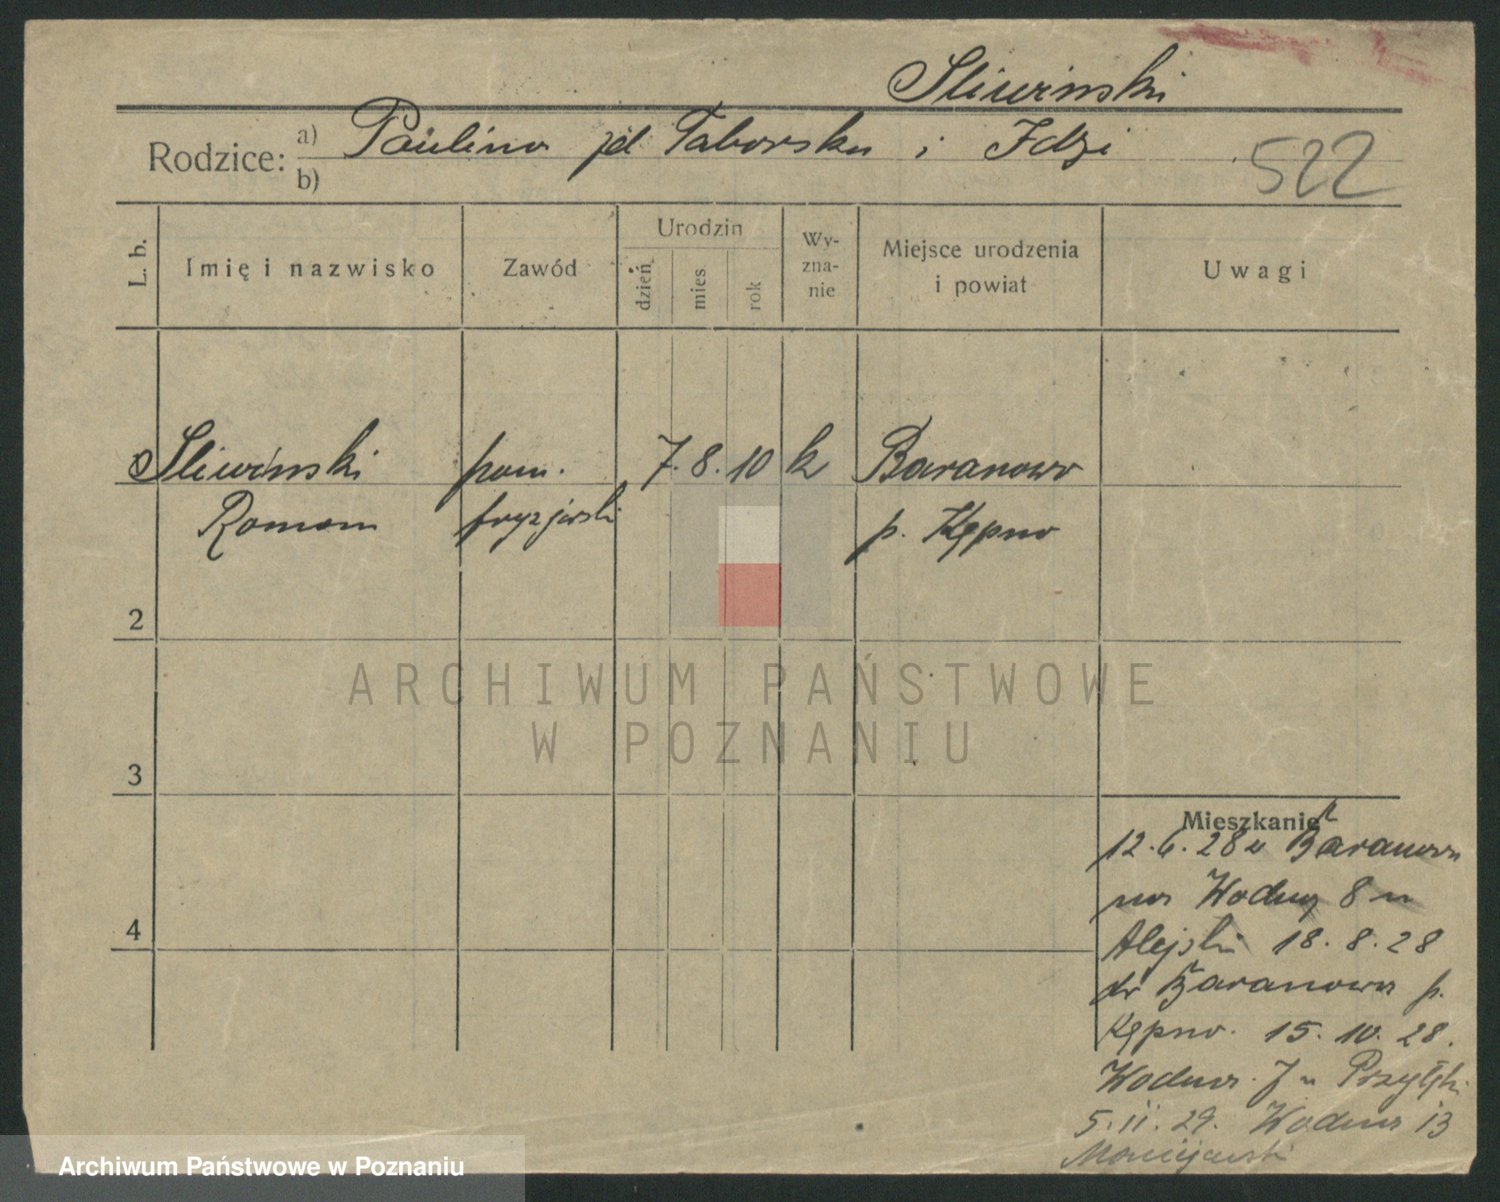 Sliwinski
Rodzice: a) Paulina zd Taborska i Idzi
b)
522
L. b.
Imię i nazwisko
Zawód
Urodzin
dzień
mies
rok
Wy-
zna-
nie
Miejsce urodzenia
i powiat
Uwagi
Sliwinski pom. 7. 8. 10 k Baranowo
Roman fryzjerski p. Kępno
2
3
4
ARCHIWUM PAŃSTWOWE
W POZNANIU
Mieszkanie
12. 6. 28 z Baranowa
na Wodną 8 u
18. 8. 28
do Baranowa p.
Kępno. 15. 10. 28.
Wodna 7 u
5. 11. 29. Wodna 13
Archiwum Państwowe w Poznaniu